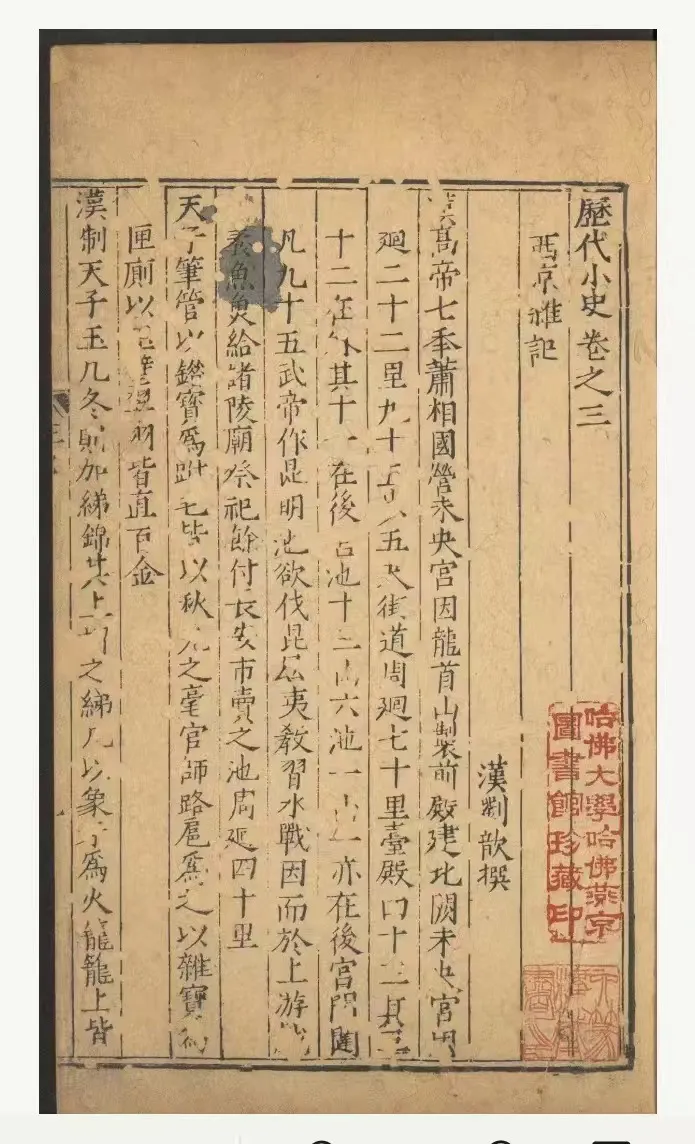 歷代小史卷之三
西京雜記
漢劉歆撰
漢髙帝七年蕭相國營未央宮因龍首山製前殿建北闕未央宮周
廻二十二里九十五步五尺街道周廻七十里臺殿四十三其三
十二在外其十一在後宮池十三山六池一山一亦在後宮門闥
凡九十五武帝作昆明池欲伐昆吾夷教習水戰因而於上游戲
養魚魚給諸陵廟祭祀餘付長安市賣之池周廻四十里
天子筆管以錯寶爲跗毛皆以秋兎之毫官師路扈爲之以雜寶爲
匣廁以玉璧翠羽皆直百金
漢制天子玉几冬則加綈錦其上謂之綈几以象牙爲火籠籠上皆
哈佛大學哈佛燕京
圖書館珍藏印